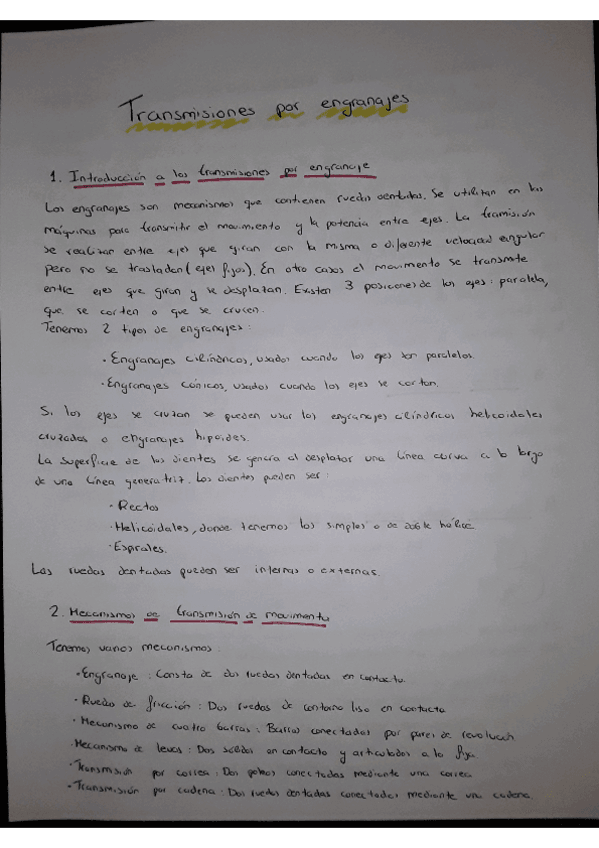 Transmisiones por engranajes
1. Introducción a las transmisiones por engranaje
Los engranajes son mecanismos que contienen ruedas dentadas. Se utilizan en las
máquinas para transmitir el movimiento y la potencia entre ejes. La tramisión
se realizan entre ejes que giran con la misma o diferente velocidad angular
pero no se trasladan (ejes fijos). En otro casos el movimento se transmite
entre ejes que giran y se desplazan. Existen 3 posiciones de los ejes: paralela,
que se corten o que se crucen.
Tenemos 2 tipos de engranajes:
· Engranajes cilíndricos, usados cuando los ejes son paralelos.
· Engranajes cónicos, usados cuando los ejes se cortan.
Si los ejes se cruzan se pueden usar los engranajes cilíndricos helicoidales
cruzados o engranajes hipoides.
La superficie de los dientes se genera al desplazar una línea curva a lo largo
de una línea generatriz. Los dientes pueden ser:
· Rectos
· Helicoidales, donde tenemos los simples o de doble hélice
· Espirales.
Las ruedas dentadas pueden ser internas o externas.
2. Mecanismos de transmisión de movimento
Tenemos varios mecanismos:
· Engranaje: Consta de dos ruedas dentadas en contacto.
· Ruedas de fricción: Dos ruedas de contorno liso en contacto
· Mecanismo de cuatro barras: Barras conectadas por pares de revolución
· Mecanismo de levas: Dos sólidos en contacto y articulados a la fija
· Transmisión por correa: Dos poleas conectadas mediante una correa
· Transmisión por cadena: Dos ruedas dentadas conectadas mediante una cadena.